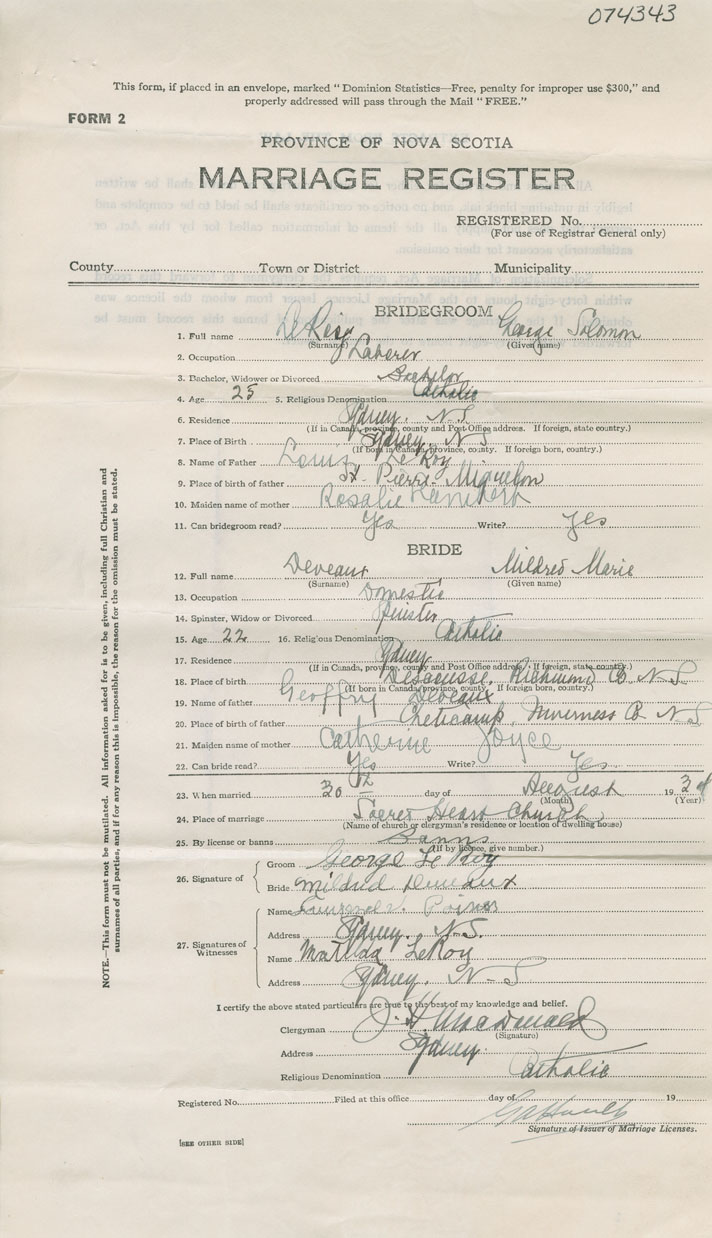 074343
This form, if placed in an envelope, marked "Dominion Statistics—Free, penalty for improper use $300," and
properly addressed will pass through the Mail "FREE."
FORM 2
PROVINCE OF NOVA SCOTIA
MARRIAGE REGISTER
REGISTERED No.
(For use of Registrar General only)
County Town or District Municipality
BRIDEGROOM
1. Full name LeRoy George Solomon
(Surname) (Given name)
2. Occupation Laborer
3. Bachelor, Widower or Divorced Bachelor
4. Age 25 5. Religious Denomination Catholic
6. Residence Sydney. N.S.
(If in Canada, province, county and Post-Office address. If foreign, state country.)
7. Place of Birth Sydney N S
(If born in Canada, province, county. If foreign born, country.)
8. Name of Father Louis LeRoy
9. Place of birth of father St. Pierre Miquelon
10. Maiden name of mother Rosalie
11. Can bridegroom read? Yes Write? Yes
BRIDE
12. Full name Deveaux Mildred Marie
(Surname) (Given name)
13. Occupation Domestic
14. Spinster, Widow or Divorced Spinster
15. Age 22 16. Religious Denomination Catholic
17. Residence Sydney
(If in Canada, province, county and Post Office address. If foreign, state country.)
18. Place of birth Descousse, Richmond Co. N. S
(If born in Canada, province, county. If foreign born, country.)
19. Name of father Geoffrey Deveaux
20. Place of birth of father Cheticamp, Inverness Co N S
21. Maiden name of mother Catherine Joyce
22. Can bride read? Yes Write? Yes
23. When married 30th day of August 193
(Month) (Year)
24. Place of marriage Sacred Heart Church
(Name of church or clergyman's residence or location of dwelling house)
25. By license or banns Banns
(If by licence, give number.)
26. Signature of
Groom George Le Roy
Bride Mildred Deveaux
27. Signatures of Witnesses
Name
Address Sydney. N.S.
Name Matilda LeRoy
Address Sydney. N-S
I certify the above stated particulars are true to the best of my knowledge and belief.
Clergyman J. H. MacDonald
(Signature)
Address Sydney
Religious Denomination Catholic
Registered No. Filed at this office day of 19
Signature of Issuer of Marriage Licenses.
[SEE OTHER SIDE]
NOTE.—This form must not be mutilated. All information asked for is to be given, including full Christian and
surnames of all parties, and if for any reason this is impossible, the reason for the omission must be stated.